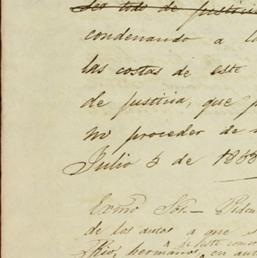 Ser todo de justicia
condenando a l
las costas de este
de justicia, que p
no proceder de
Julio 5 de 186
Exmo Sor. — Pedr
de los autos a que s
hermano en aut